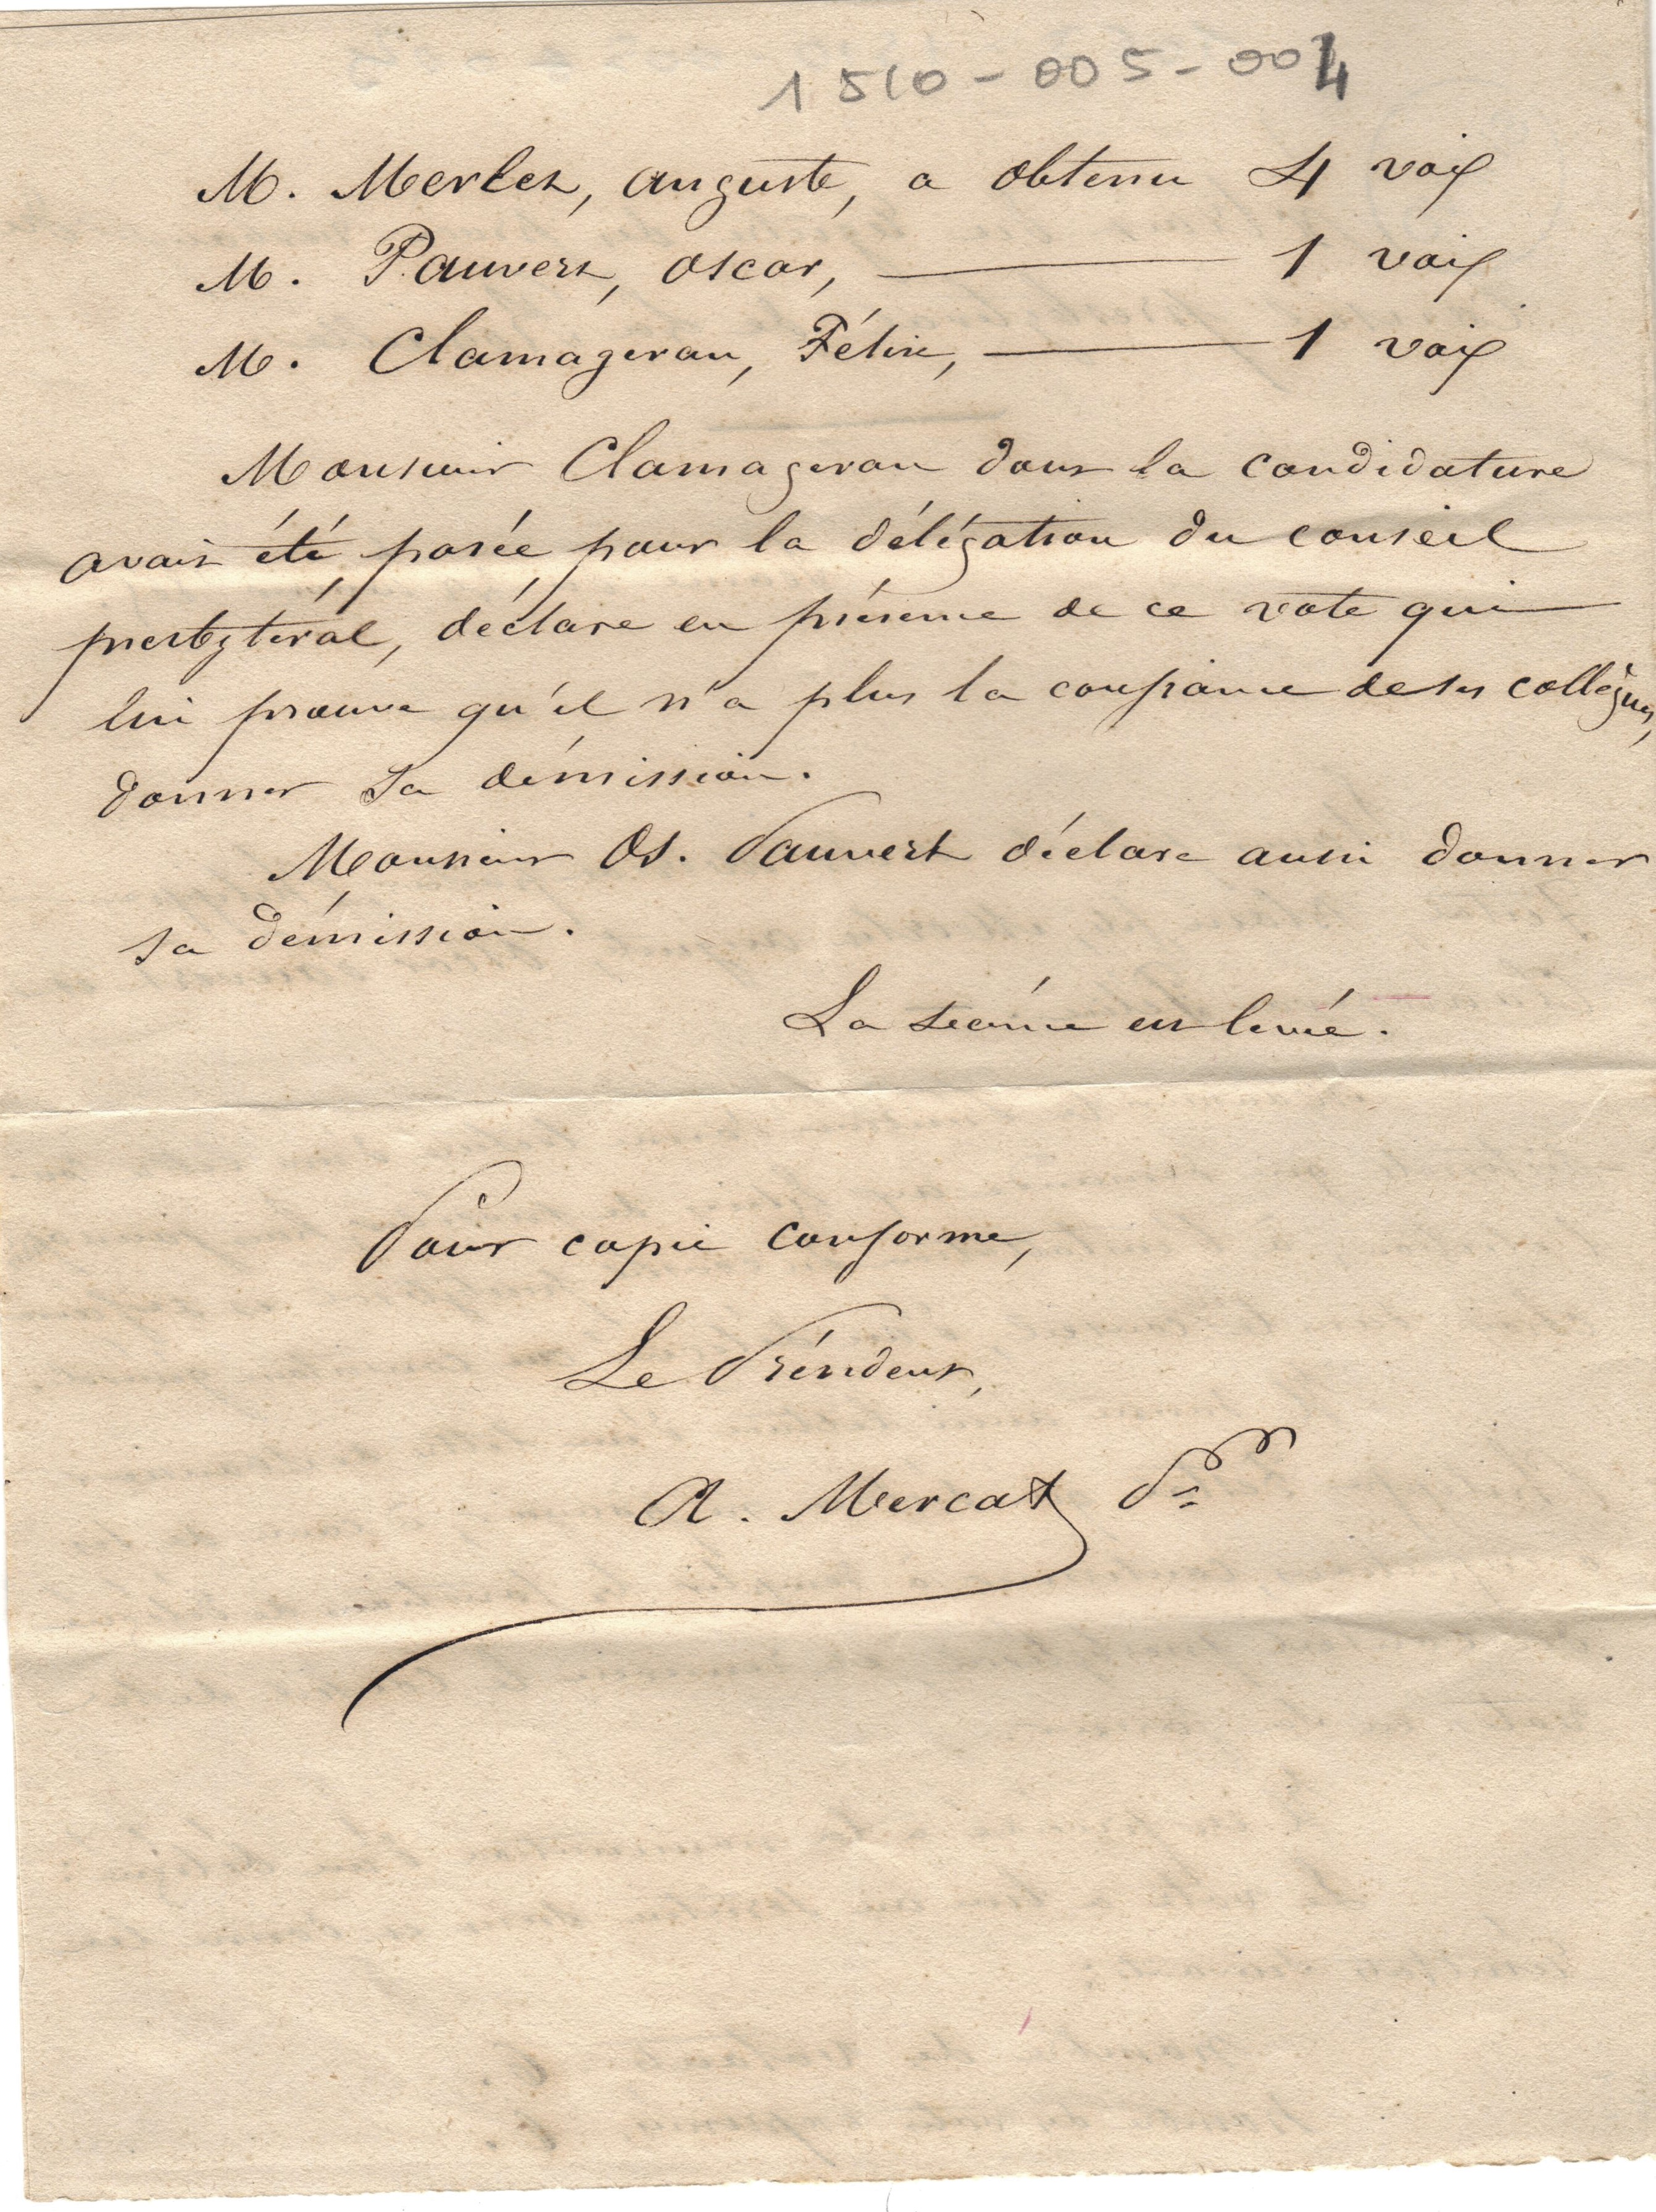 1510-005-004
M. Merlet, auguste, a obtenu 4 voix
M. Pauvert, oscar, 1 voix
M. Clamageran, Félix, 1 voix
Monsieur Clamageran dont la candidature
avait été posée pour la délégation du conseil
presbytéral, déclare en présence de ce vote qui
lui prouve qu'il n'a plus la confiance de ses collègues,
donner sa démission.
Monsieur Os. Pauvert déclare aussi donner
sa démission.
La séance est levée.
Pour copie conforme,
Le Président,
A. Mercat Pr